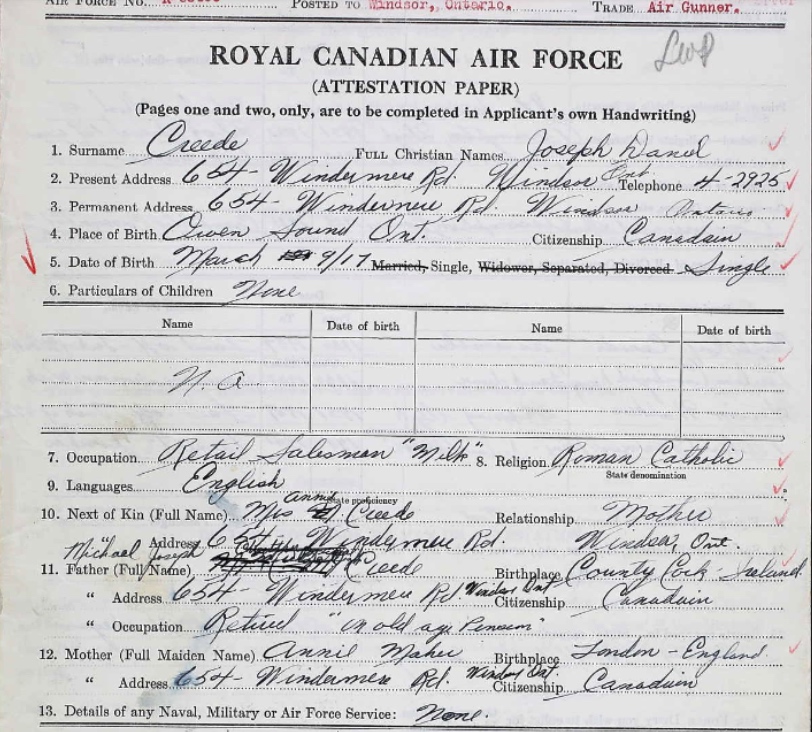 AIR FORCE No. POSTED TO Windsor, Ontario. TRADE Air Gunner.
ROYAL CANADIAN AIR FORCE
(ATTESTATION PAPER)
(Pages one and two, only, are to be completed in Applicant's own Handwriting)
1. Surname Creede FULL Christian Names Joseph Daniel
2. Present Address 654 - Windermere Rd. Windsor Ont Telephone 4-2925
3. Permanent Address 654 - Windermere Rd. Windsor Ontario
4. Place of Birth Owen Sound Ont. Citizenship Canadain
5. Date of Birth March 9/17 Married, Single, Widower, Separated, Divorced Single
6. Particulars of Children None
Name Date of birth Name Date of birth
N. A
7. Occupation Retail Salesman "Milk" 8. Religion Roman Catholic
State denomination
9. Languages English
State proficiency
10. Next of Kin (Full Name) Mrs Annie Creede Relationship Mother
" Address 654 Windermere Rd. Windsor, Ont.
Michael Joseph
11. Father (Full Name) Creede Birthplace County Cork - Ireland
" Address 654 - Windermere Rd Windsor Ont Citizenship Canadain
" Occupation Retired "in old age Pension"
12. Mother (Full Maiden Name) Annie Maher Birthplace London - England
" Address 654 - Windermere Rd. Windsor Ont. Citizenship Canadain
13. Details of any Naval, Military or Air Force Service: None.